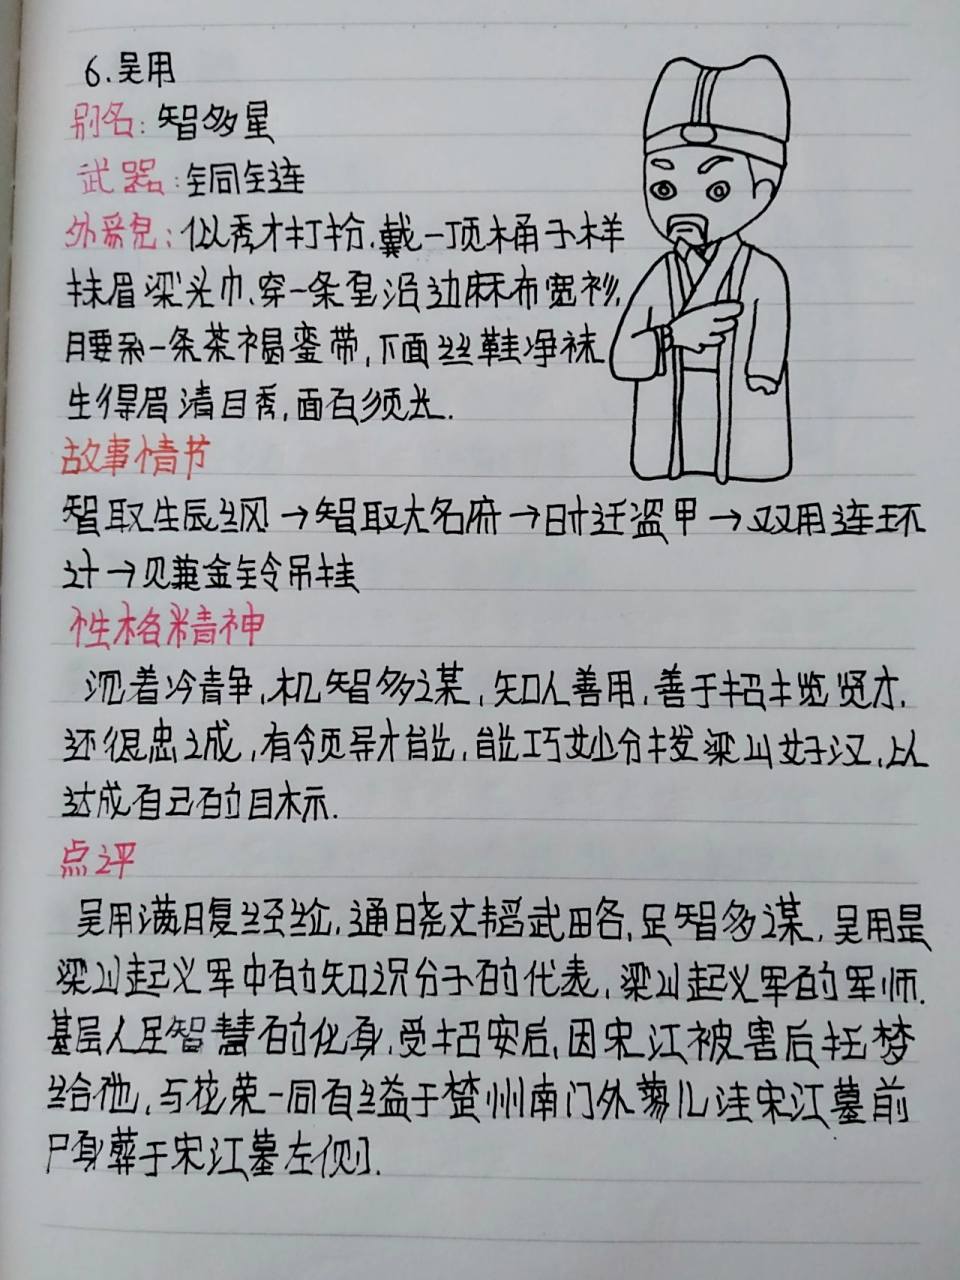 6.吴用
别名:智多星
武器:铜链
外貌:似秀才打扮,戴一顶桶子样
抹眉梁头巾,穿一条皂沿边麻布宽衫,
腰系一条茶褐銮带,下面丝鞋净袜
生得眉清目秀,面白须长.
故事情节
智取生辰纲→智取大名府→时迁盗甲→双用连环
计→见兼金铃吊挂
性格精神
沉着冷静,机智多谋,知人善用,善于招揽贤才,
还很忠诚,有领导才能,能巧妙分拨梁山好汉,以
达成自己的目标.
点评
吴用满腹经纶,通晓文韬武略,足智多谋,吴用是
梁山起义军中的知识分子的代表,梁山起义军的军师.
基层人民智慧的化身,受招安后,因宋江被害后托梦
给他,与花荣一同自缢于楚州南门外蓼儿洼宋江墓前
尸身葬于宋江墓左侧.